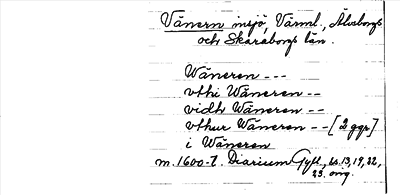 Vänern insjö, Värml., Älvsborgs
och Skaraborgs län.
Wäneren ---
vthi Wäneren --
vidh Wäneren --
vthur Wäneren -- [2 ggr]
i Wäneren
m. 1600-t. Diarium Gyll., bs. 13, 19, 22,
23. orig.